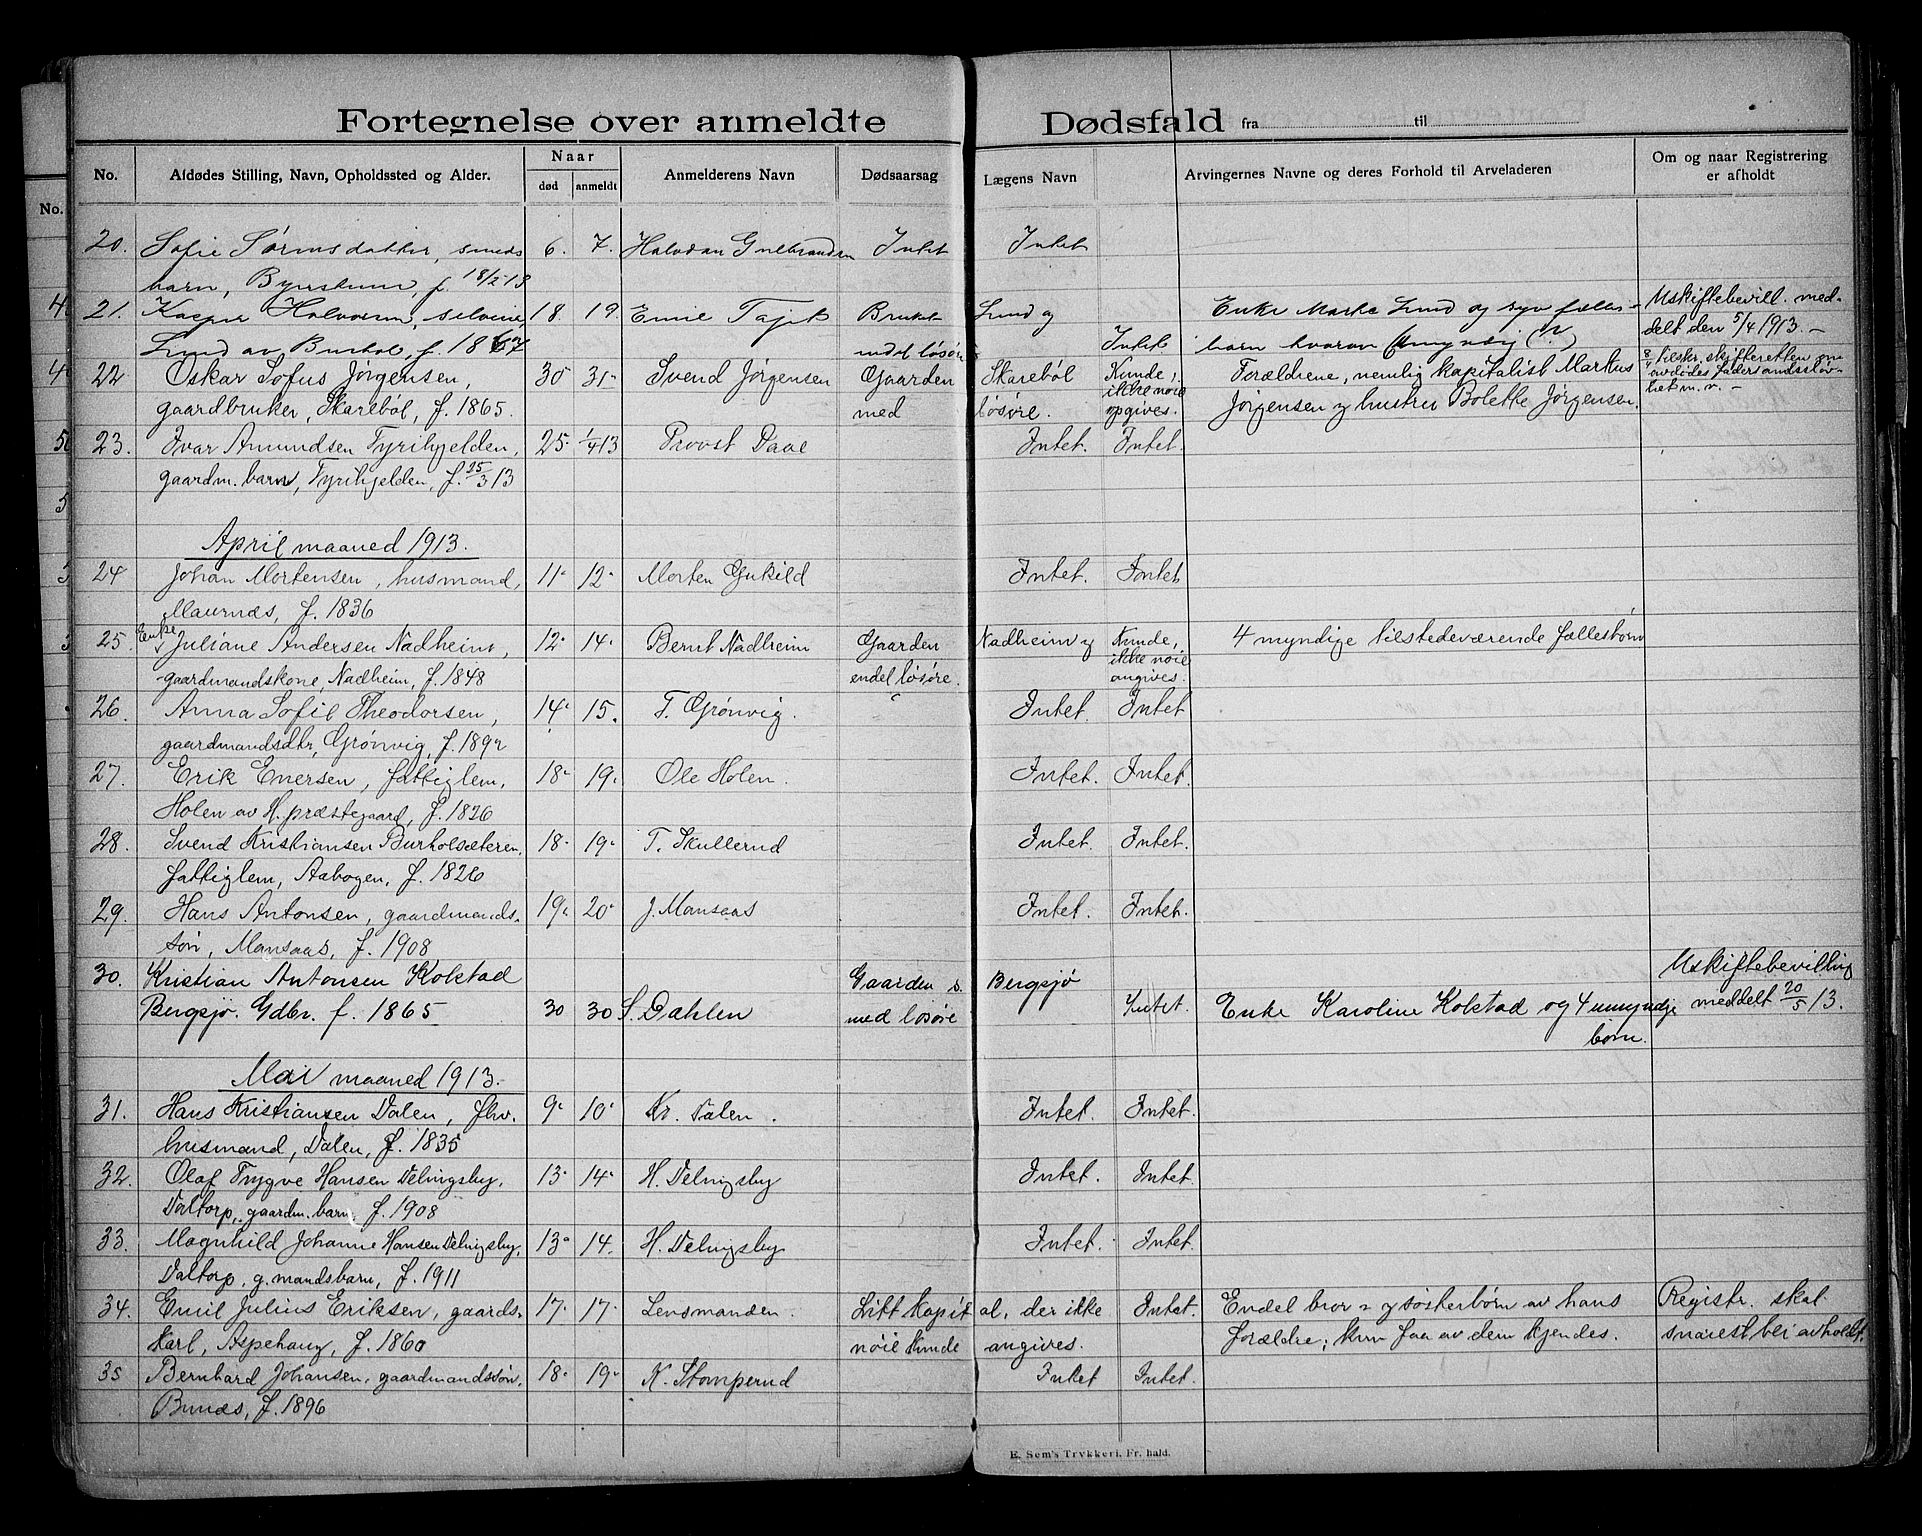 Fortegnelse over anmeldte Dødsfald fra til
No. Afdødes Stilling, Navn, Opholdssted og Alder. Naar død anmeldt Anmelderens Navn Dødsaarsag Lægens Navn Arvingernes Navne og deres Forhold til Arveladeren Om og naar Registrering er afholdt
No.
20. Sofie 6. 7. Halvdan Intet Intet
barn, f. 18/2 13
21. Kasper Halvorsen, 18. 19. Bruket Lund og Enke Marte Lund og syv fælles- Uskiftebevill. med-
Lund av Burhol, f. 1867 med løsøre Intet barn hvorav delt den 5/4 1913. –
22 Oskar Sofus Jørgensen, 30 31 Svend Jørgensen Gaarden Skarebøl Kunde, Forældrene, nemlig kapitalist Markus 8/4 tilskr. skifteretten om
gaardbruker, Skarebøl, f. 1865. med løsøre. ikke nøie opgives. Jørgensen og hustru Bolette Jørgensen. avdødes
23. Ivar Amundsen Tyrihjelden, 25. 1/4 13 Provst Daae Intet. Intet.
gaardm. barn, Tyrihjelden, f. 25/3 13
April maaned 1913.
24 Johan Mortensen, husmand, 11. 12. Morten Intet. Intet
Maurnæs, f. 1836
25. Enke Juliane Andersen Nadheim, 12. 14. Bernt Nadheim Gaarden Nadheim og Kunde, 4 myndige tilstedeværende fællesbørn
gaardmandskone, Nadheim, f. 1848 endel løsøre. ikke nøie angives.
26. Anna Sofie Theodorsen, 14. 15. T. Grønvig. Intet. Intet
gaardmandsdtr, Grønvig, f. 1892
27. Erik Enersen, fattiglem, 18. 19. Ole Holen. Intet. Intet.
Holen av H. præstegaard, f. 1826
28. Svend Kristiansen Burholsæteren, 18. 19. T. Skullerud Intet. Intet.
fattiglem, Aabogen, f. 1826
29. Hans Antonsen, gaardmands- 19. 20. J. Mansaas Intet. Intet.
søn, Mansaas, f. 1908
30. Kristian Antonsen Kolstad Gaarden Bergsjø Uskiftebevilling
Bergsjø. Gdbr. f. 1865 30 30 S. Dahlen med løsøre Intet. Enke Karoline Kolstad og 4 umyndige meddelt 20/5 13.
børn.
Mai maaned 1913.
31. Hans Kristiansen Dalen, fhv. 9. 10. Kr. Dalen. Intet. Intet.
husmand, Dalen, f. 1835
32. Olaf Trygve Hansen Delingsby, 13. 14. H. Delingsby Intet. Intet.
Daltorp, gaardm. barn, f. 1908
33. Magnhild Johanne Hansen Delingsby, 13. 14. H. Delingsby Intet. Intet.
Daltorp, g. mandsbarn, f. 1911
34. Emil Julius Eriksen, gaards- 17. 17. Lensmanden. Litt kapital, der ikke Intet. Endel bror- og søsterbørn av hans Registr. skal
karl, Aspehaug, f. 1860 nøie kunde angives. forældre; kun faa av dem kjendes. snarest bli avholdt.
35 Bernhard Johansen, gaardmandssøn, 18. 19. K. Stomperud Intet Intet.
Bunæs, f. 1896
E. Sem's Trykkeri, Fr. hald.